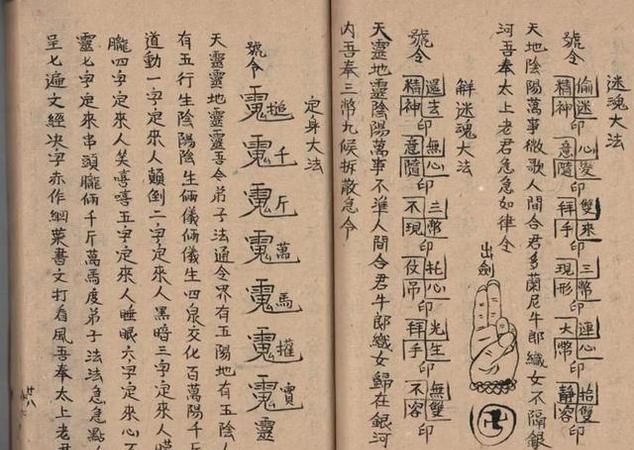 迷魂大法
號令 偷迷精神印 心發意隨印 雙來拜手印 三幣現形印 連心大幣印 抬雙靜容印
天地陰陽萬事微歌人間合君多蘭尼牛郎織女不隔銀
河吾奉太上老君急急如律令
出劍
卍
鮮迷魂大法
號令 還去精神印 無心意隨印 三幣不現印 托心仗吊印 先生拜手印 無雙不容印
天靈地靈陰陽萬事不準人間合君牛郎織女歸在銀河
內吾奉三幣九候拆散急令
定身大法
號令 千斤萬馬 靈
天靈靈地靈靈吾令弟子法通令界有五陽地有五陰人
有五行生陰陽陰生倆儀倆儀生四泉交化百萬陽千斤
道動一字定來人顛倒二字定來人黑暗三字定來人朦
朧四字定來人笑嘻嘻五字定來人睡眠六字定來人心不
靈七字定來串頭朧倆千斤萬馬度弟子法法急急點人
呈七遍文經決字赤作綱葉書文打看風吾奉太上老君
廿八